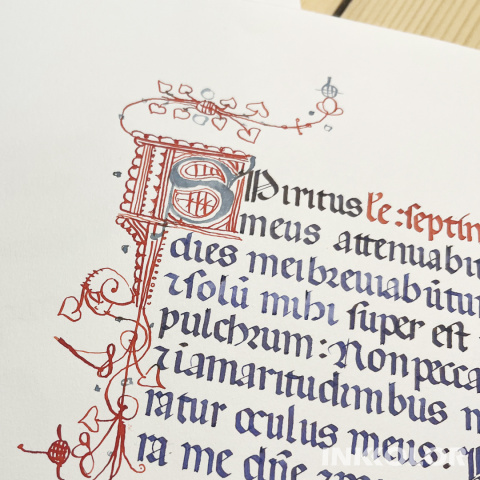 SPiritus Le : septin
meus attenuabū
dies mei breviabūtur
⁊ solū mihi super est
pulchrum : Non pecca
⁊ i amaritudinibus m
ratur oculus meus :
ra me dn̄e
INKCOLOR